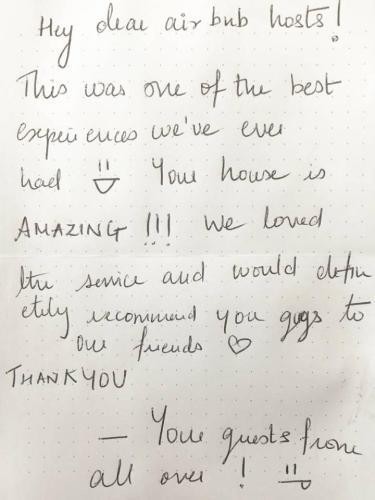 Hey dear air bnb hosts!
This was one of the best
experiences we've ever
had Your house is
AMAZING !!! We loved
the service and would defin
etely recommend you guys to
our friends ♡
THANK YOU
— Your guests from
all over !